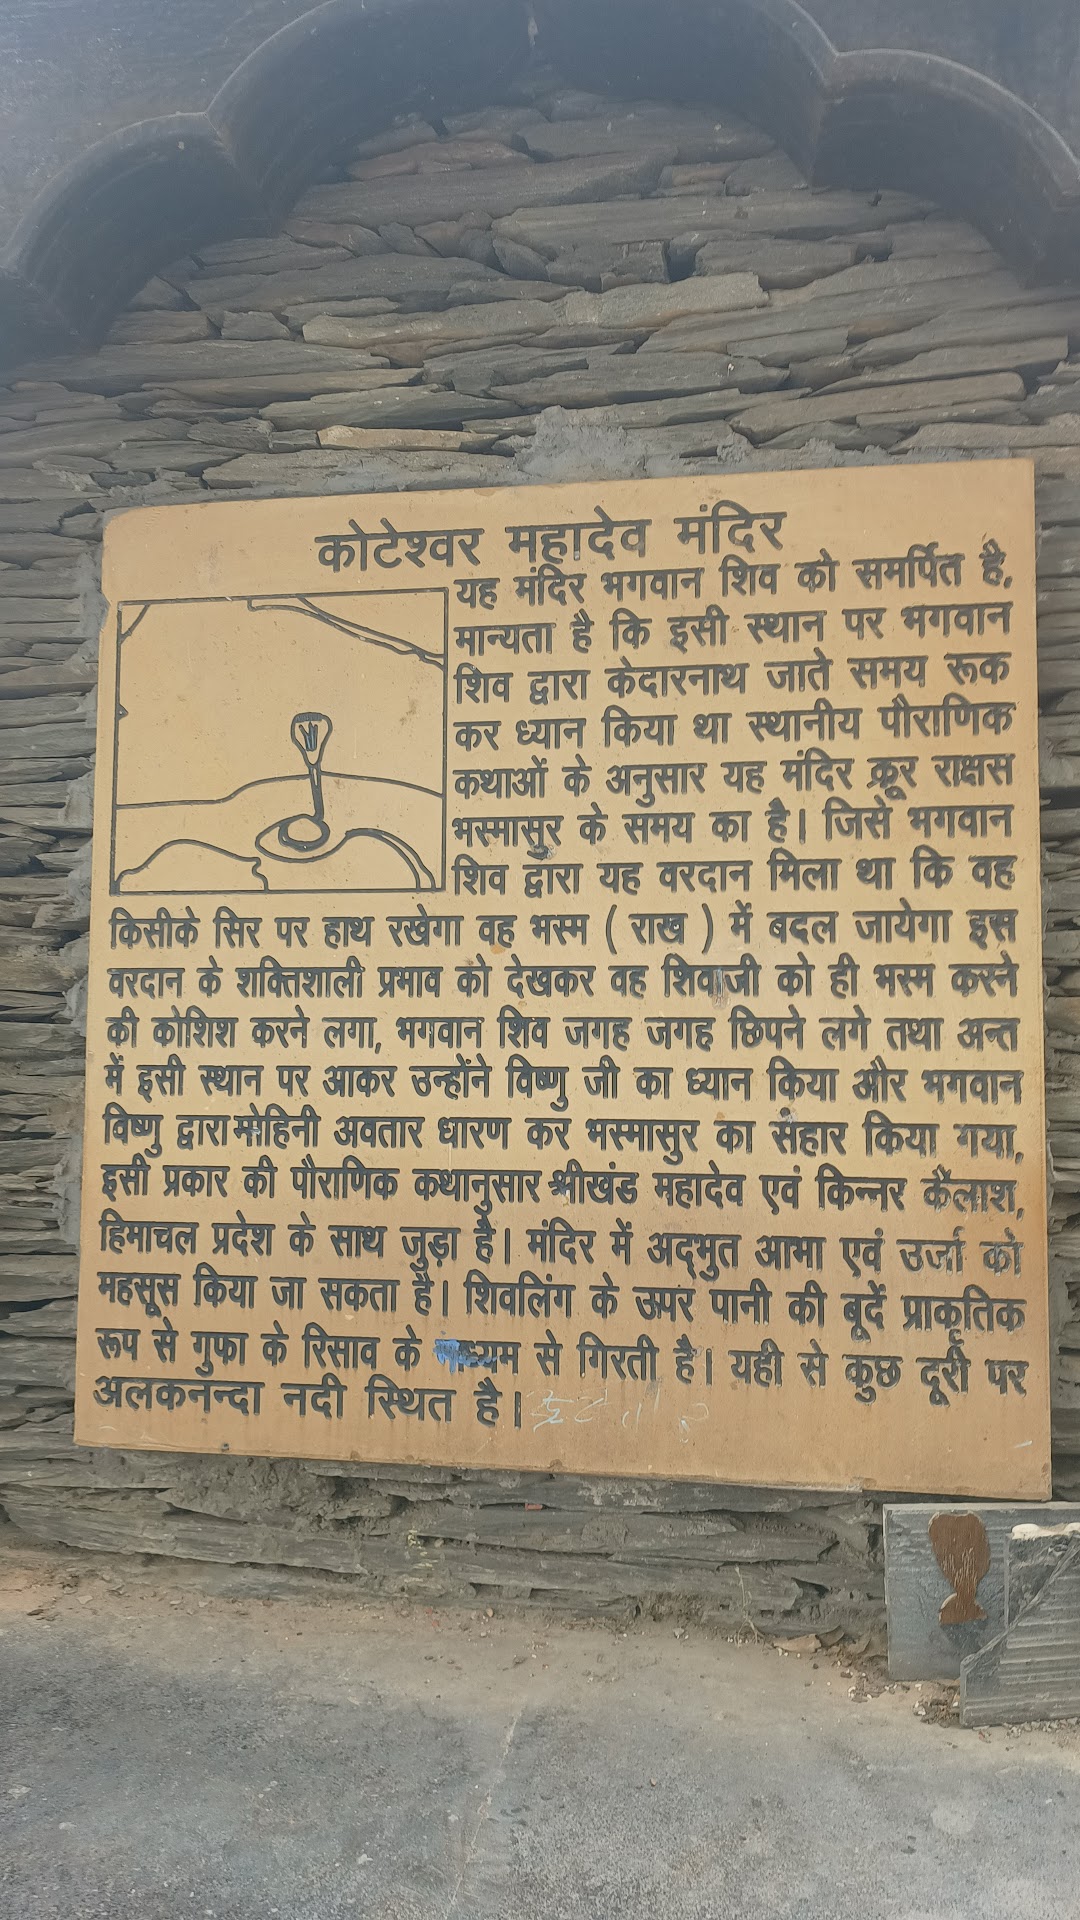 कोटेश्वर महादेव मंदिर
यह मंदिर भगवान शिव को समर्पित है,
मान्यता है कि इसी स्थान पर भगवान
शिव द्वारा केदारनाथ जाते समय रूक
कर ध्यान किया था स्थानीय पौराणिक
कथाओं के अनुसार यह मंदिर क्रूर राक्षस
भस्मासुर के समय का है। जिसे भगवान
शिव द्वारा यह वरदान मिला था कि वह
किसीके सिर पर हाथ रखेगा वह भस्म ( राख ) में बदल जायेगा इस
वरदान के शक्तिशाली प्रभाव को देखकर वह शिवाजी को ही भस्म करने
की कोशिश करने लगा, भगवान शिव जगह जगह छिपने लगे तथा अन्त
में इसी स्थान पर आकर उन्होंने विष्णु जी का ध्यान किया और भगवान
विष्णु द्वारा मोहिनी अवतार धारण कर भस्मासुर का संहार किया गया,
इसी प्रकार की पौराणिक कथानुसार श्रीखंड महादेव एवं किन्नर कैलाश,
हिमाचल प्रदेश के साथ जुड़ा है। मंदिर में अद्भुत आभा एवं उर्जा को
महसूस किया जा सकता है। शिवलिंग के उपर पानी की बूदें प्राकृतिक
रूप से गुफा के रिसाव के से गिरती है। यही से कुछ दूरी पर
अलकनन्दा नदी स्थित है।